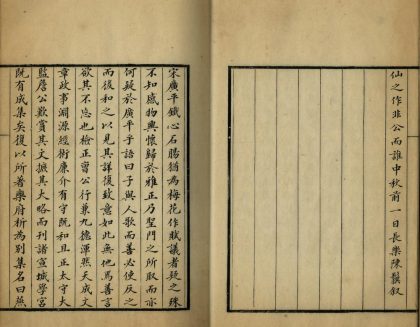 仙之作非公而誰中秋前一日長樂陳叙
宋廣平鐵心石腸猶為梅花作賦議者疑之殊
不知感物興懷歸於雅正乃聖門之所取而亦
何疑於廣平乎語曰子與人歌而善必使反之
而後和之以見其詳復致意如此無他焉善言
欲其不忘也檢正曹公行兼九德渾然天成文
章政事淵源經術廉介有守既和且正太守大
監詹公歎賞其文摭其大略而刊諸宣城學宮
既有成集矣復以所著樂府析為別集名曰燕